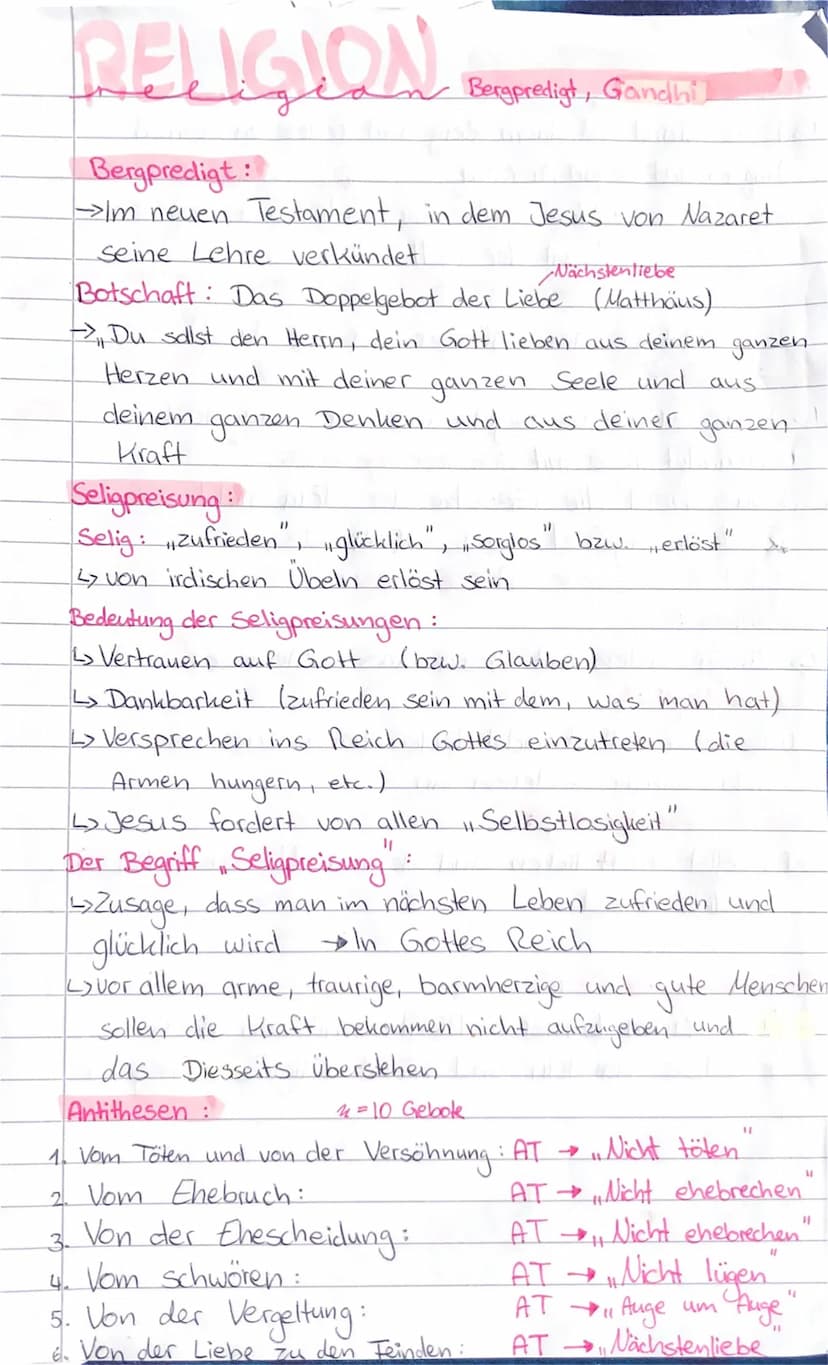 RELIGION
religion Bergpredigt, Gandhi
Bergpredigt:
→Im neuen Testament, in dem Jesus von Nazaret
seine Lehre verkündet
Nächstenliebe
Botschaft: Das Doppelgebot der Liebe (Matthäus)
→„Du sollst den Herrn, dein Gott lieben aus deinem ganzen
Herzen und mit deiner ganzen Seele und aus
deinem ganzen Denken und aus deiner ganzen
Kraft
Seligpreisung:
Selig: „zufrieden", „glücklich", „sorglos" bzw. „erlöst"
↳ von irdischen Übeln erlöst sein
Bedeutung der Seligpreisungen:
↳ Vertrauen auf Gott (bzw. Glauben)
↳ Dankbarkeit (zufrieden sein mit dem, was man hat)
↳ Versprechen ins Reich Gottes einzutreten (die
Armen hungern, etc.)
↳ Jesus fordert von allen „Selbstlosigkeit"
Der Begriff „Seligpreisung":
↳ Zusage, dass man im nächsten Leben zufrieden und
glücklich wird → In Gottes Reich
↳ vor allem arme, traurige, barmherzige und gute Menschen
sollen die Kraft bekommen nicht aufzugeben und
das Diesseits überstehen
Antithesen: =10 Gebote
1. Vom Töten und von der Versöhnung: AT → „Nicht töten"
2. Vom Ehebruch: AT → „Nicht ehebrechen"
3. Von der Ehescheidung: AT → „Nicht ehebrechen"
4. Vom schwören: AT → „Nicht lügen"
5. Von der Vergeltung: AT → „Auge um Auge"
6. Von der Liebe zu den Feinden: AT → „Nächstenliebe"